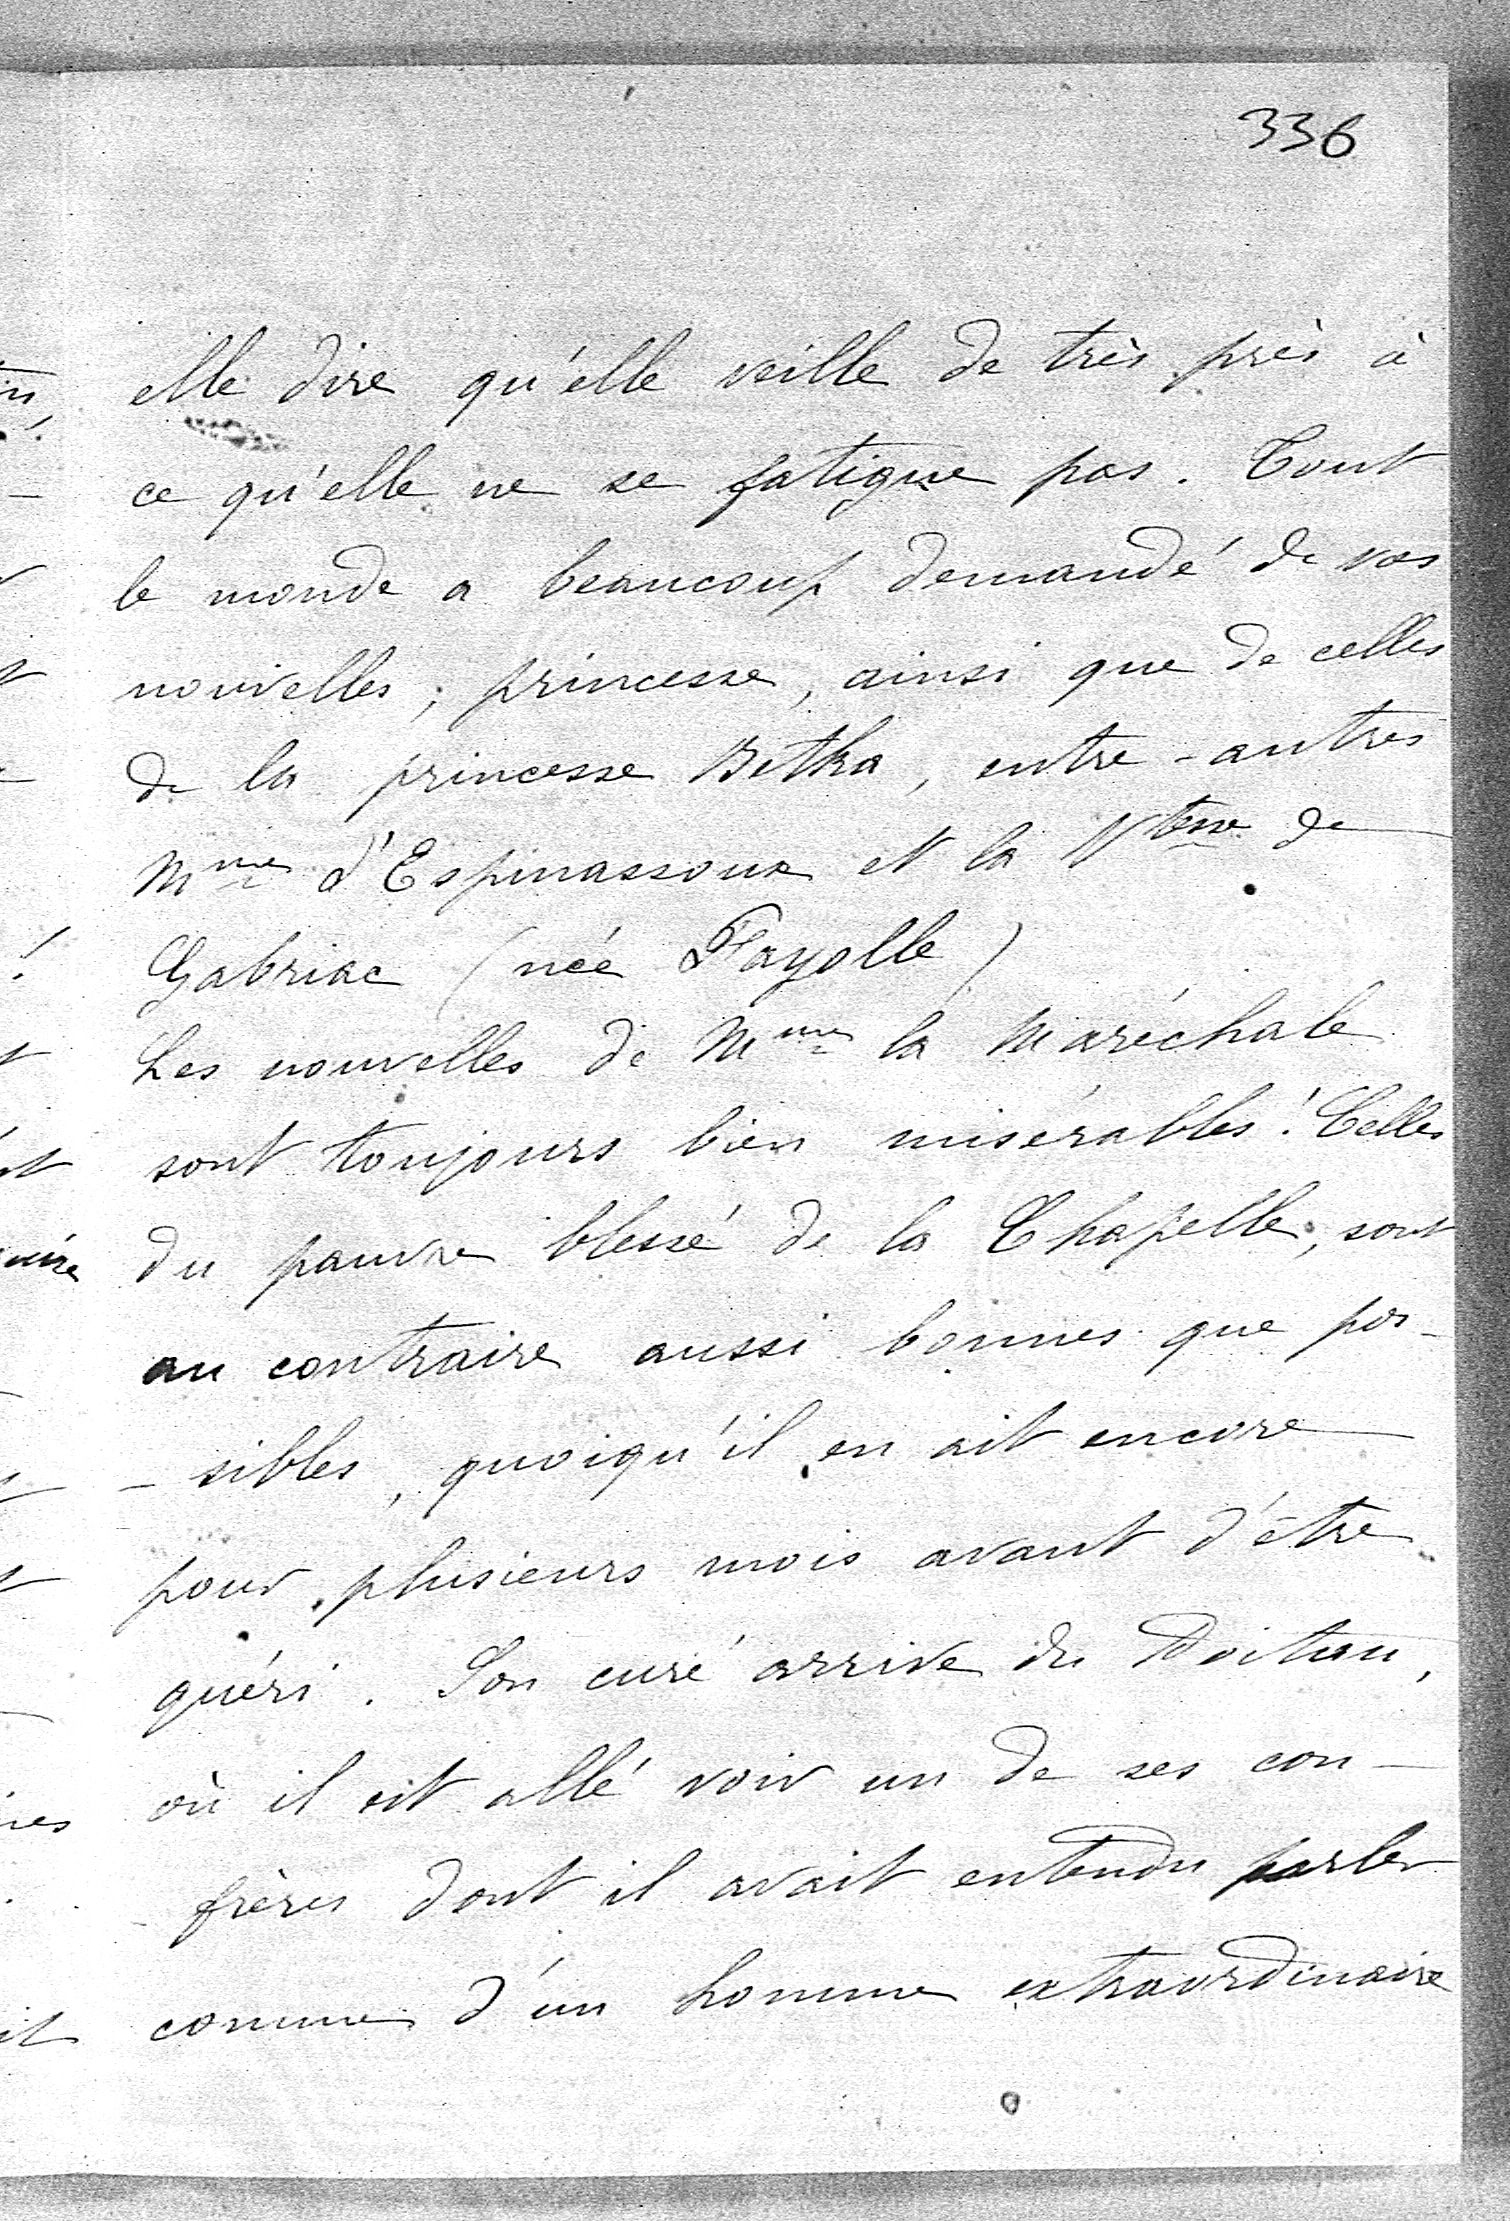 336
elle dire qu'elle veille de très près à
ce qu'elle ne se fatigue pas. Tout
le monde a beaucoup demandé de vos
nouvelles, princesse, ainsi que de celles
de la princesse Betka, entre-autres
Mme d'Espinassoux et la Vtesse de
Gabriac (née Fayolle)
Les nouvelles de Mme la Maréchale
sont toujours bien misérables! Celles
du pauvre blessé de la Chapelle, sont
au contraire aussi bonnes que pos-
-sibles, quoiqu'il en ait encore
pour plusieurs mois avant d'être
guéri. Son curé arrive du Poitou,
où il est allé voir un de ses con-
-frères dont il avait entendu parler
comme d'un homme extraordinaire